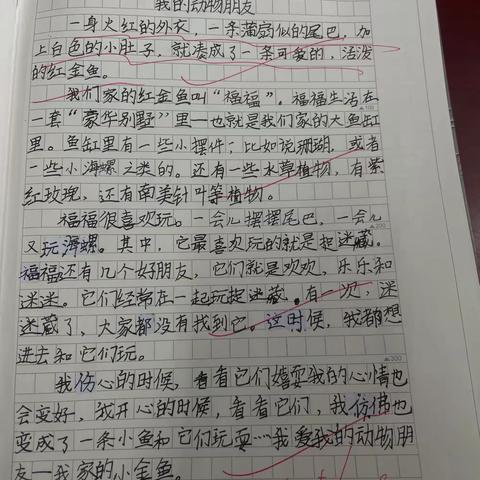 我的动物朋友
一身火红的外衣，一条蒲扇似的尾巴，加
上白色的小肚子，就凑成了一条可爱的，活泼
的红金鱼。
我们家的红金鱼叫“福福”。福福生活在
一套“豪华别野”里—也就是我们家的大鱼缸
里。鱼缸里有一些小摆件：比如说珊瑚，或者
一些小海螺之类的。还有一些水草植物，有紫
红玫瑰，还有南美针叶等植物。
福福很喜欢玩。一会儿摆摆尾巴，一会儿
又玩海螺。其中，它最喜欢玩的就是捉迷藏。
福福还有几个好朋友，它们就是欢欢，乐乐和
迷迷。它们经常在一起玩捉迷藏。有一次，迷
迷藏了，大家都没有找到它。这时候，我都想
进去和它们玩。
我伤心的时候，看看它们嬉耍我的心情也
会变好，我开心的时候，看看它们，我仿佛也
变成了一条小鱼和它们玩耍…我爱我的动物朋
友—我家的小金鱼。
100
200
300